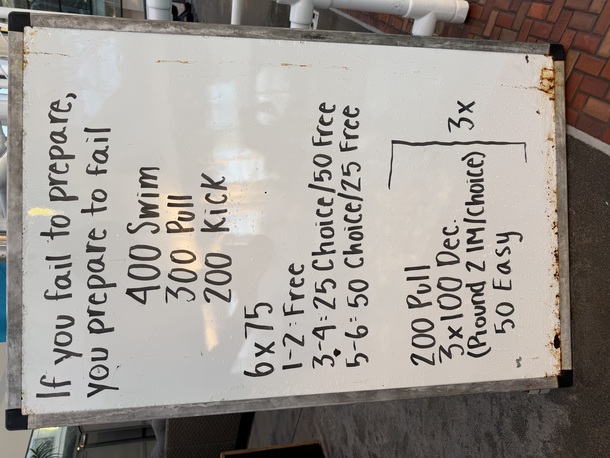 If you fail to prepare,
you prepare to fail
400 Swim
300 Pull
200 Kick
6x75
1-2: Free
3-4: 25 Choice/50 Free
5-6: 50 Choice/25 Free
200 Pull
3x100 Dec.
(Round 2 IM/Choice)
50 Easy
3x